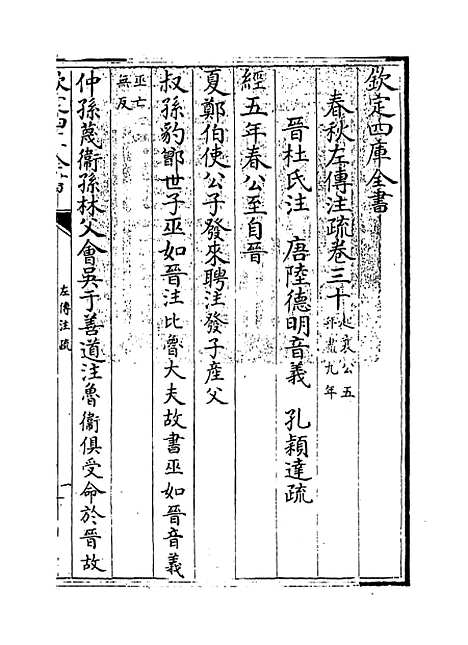 欽定四庫全書
春秋左傳注疏卷三十起襄公五年盡九年
晉杜氏注 唐陸德明音義 孔穎達疏
經五年春公至自晉
夏鄭伯使公子發來聘注發子產父
叔孫豹鄫世子巫如晉注比魯大夫故書巫如晉音義
巫亡無反
仲孫蔑衛孫林父會吳于善道注魯衛俱受命於晉故
左傳注疏